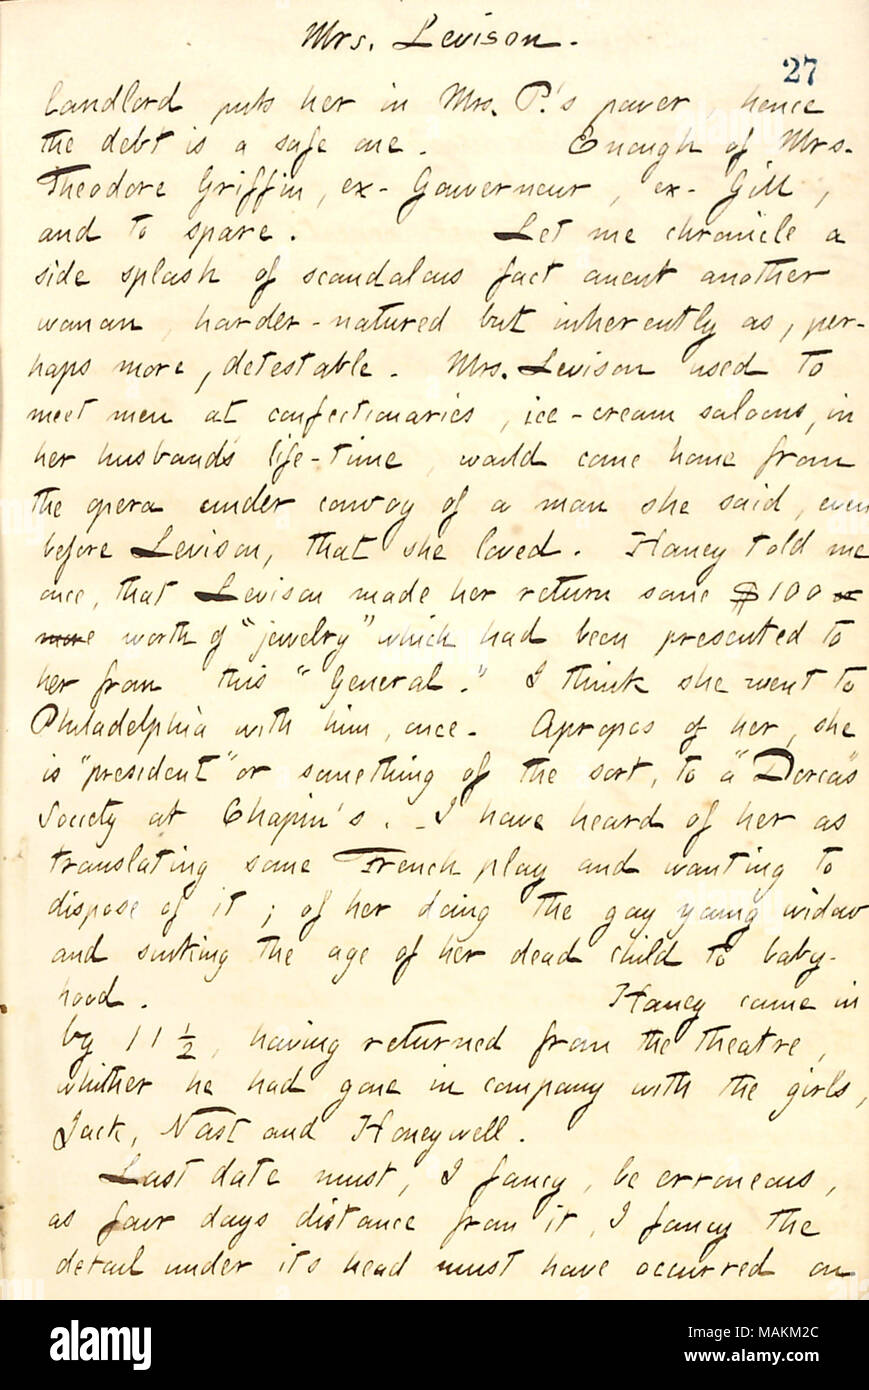 Mrs. Levison.
27
landlord puts her in Mrs. P.'s power, hence
the debt is a safe one. Enough of Mrs.
Theodore Griffin, ex-Gouverneur, ex-Gill,
and to spare. Let me chronicle a
side splash of scandalous fact anent another
woman, harder-natured but inherently as, per-
haps more, detestable. Mrs. Levison used to
meet men at confectionaries, ice-cream saloons, in
her husband's life-time, would come home from
the opera under convoy of a man she said, even
before Levison, that she loved. Haney told me
once, that Levison made her return some $100 or
more worth of "jewelry" which had been presented to
her from this "General." I think she went to
Philadelphia with him, once. Apropos of her, she
is "president" or something of the sort, to a "Dorcas"
Society at Chapin's. - I have heard of her as
translating some French play and wanting to
dispose of it; of her doing the gay young widow
and sinking the age of her dead child to baby-
hood. Haney came in
by 11 1/2, having returned from the theatre,
whither he had gone in company with the girls,
Jack, Nast and Honeywell.
Last date must, I fancy, be erroneous,
as four days distance from it, I fancy the
detail under its head must have occurred on
alamy
Image ID: MAKM2C
www.alamy.com